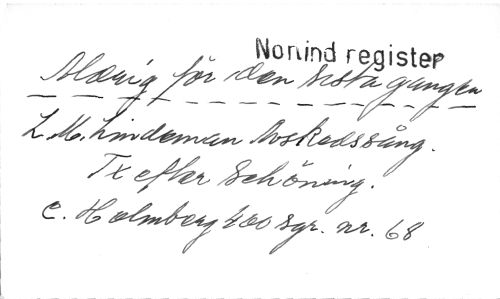 Norvind register
Aldrig för den sista gången
L. M. Lindeman Avskedssång.
Tx efter Schöning.
C. Holmberg 400 sgr. nr. 68